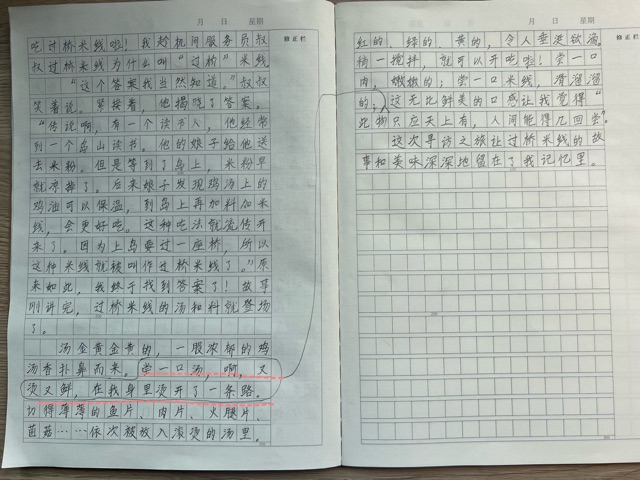 月 日 星期
修正栏
吃过桥米线啦！我趁机问服务员叔
叔过桥米线为什么叫“过桥”米线。
“这个答案我当然知道。”叔叔
笑着说。紧接着，他揭晓了答案。
“传说啊，有一个读书人，他经常
到一个岛山读书。他的娘子给他送
去米粉。但是等到了岛上，米粉早
就凉掉了。后来娘子发现鸡汤上的
鸡油可以保温，到岛上再加料加米
线，会更好吃。这种吃法就流传开
来了。因为上岛要过一座桥，所以
这种米线就被叫作过桥米线了。”原
来如此，我终于找到答案了！故事
刚讲完，过桥米线的汤和料就登场
了。
汤金黄金黄的，一股浓郁的鸡
汤香扑鼻而来。尝一口汤，啊，又
烫又鲜，在我身里烫开了一条路。
切得薄薄的鱼片、肉片、火腿片、
菌菇……依次被放入滚烫的汤里。
月 日 星期
修正栏
红的、绿的、黄的，令人垂涎欲滴。
稍一搅拌，就可以开吃啦！尝一口
肉，嫩嫩的；尝一口米线，滑溜溜
的；这无比鲜美的口感让我觉得“
此物只应天上有，人间能得几回尝”
这次寻访之旅让过桥米线的故
事和美味深深地留在了我记忆里。